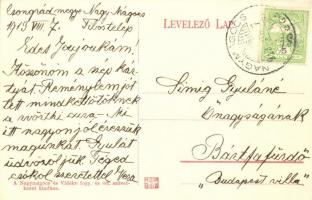 Csongrád megye Nagy Mágocs
1913 VIII 7.
Édes Gyuyókám,
Köszönöm a szép kár-
tyát. Reménylem jól
tett mindkettőtöknek
a vörthi cura. Mi
itt nagyon jól érezzük
magunkat. Gyulát
üdvözöljük. Téged
csókol szeretettel
A Nagymágocs és Vidéke fogy. és ért. szövet-
kezet kiadása.
LEVELEZŐ LAP
NAGYMÁGOCS
Simig Gyuláné
Őnagyságának
Bártfafürdő
„Budapest villa"